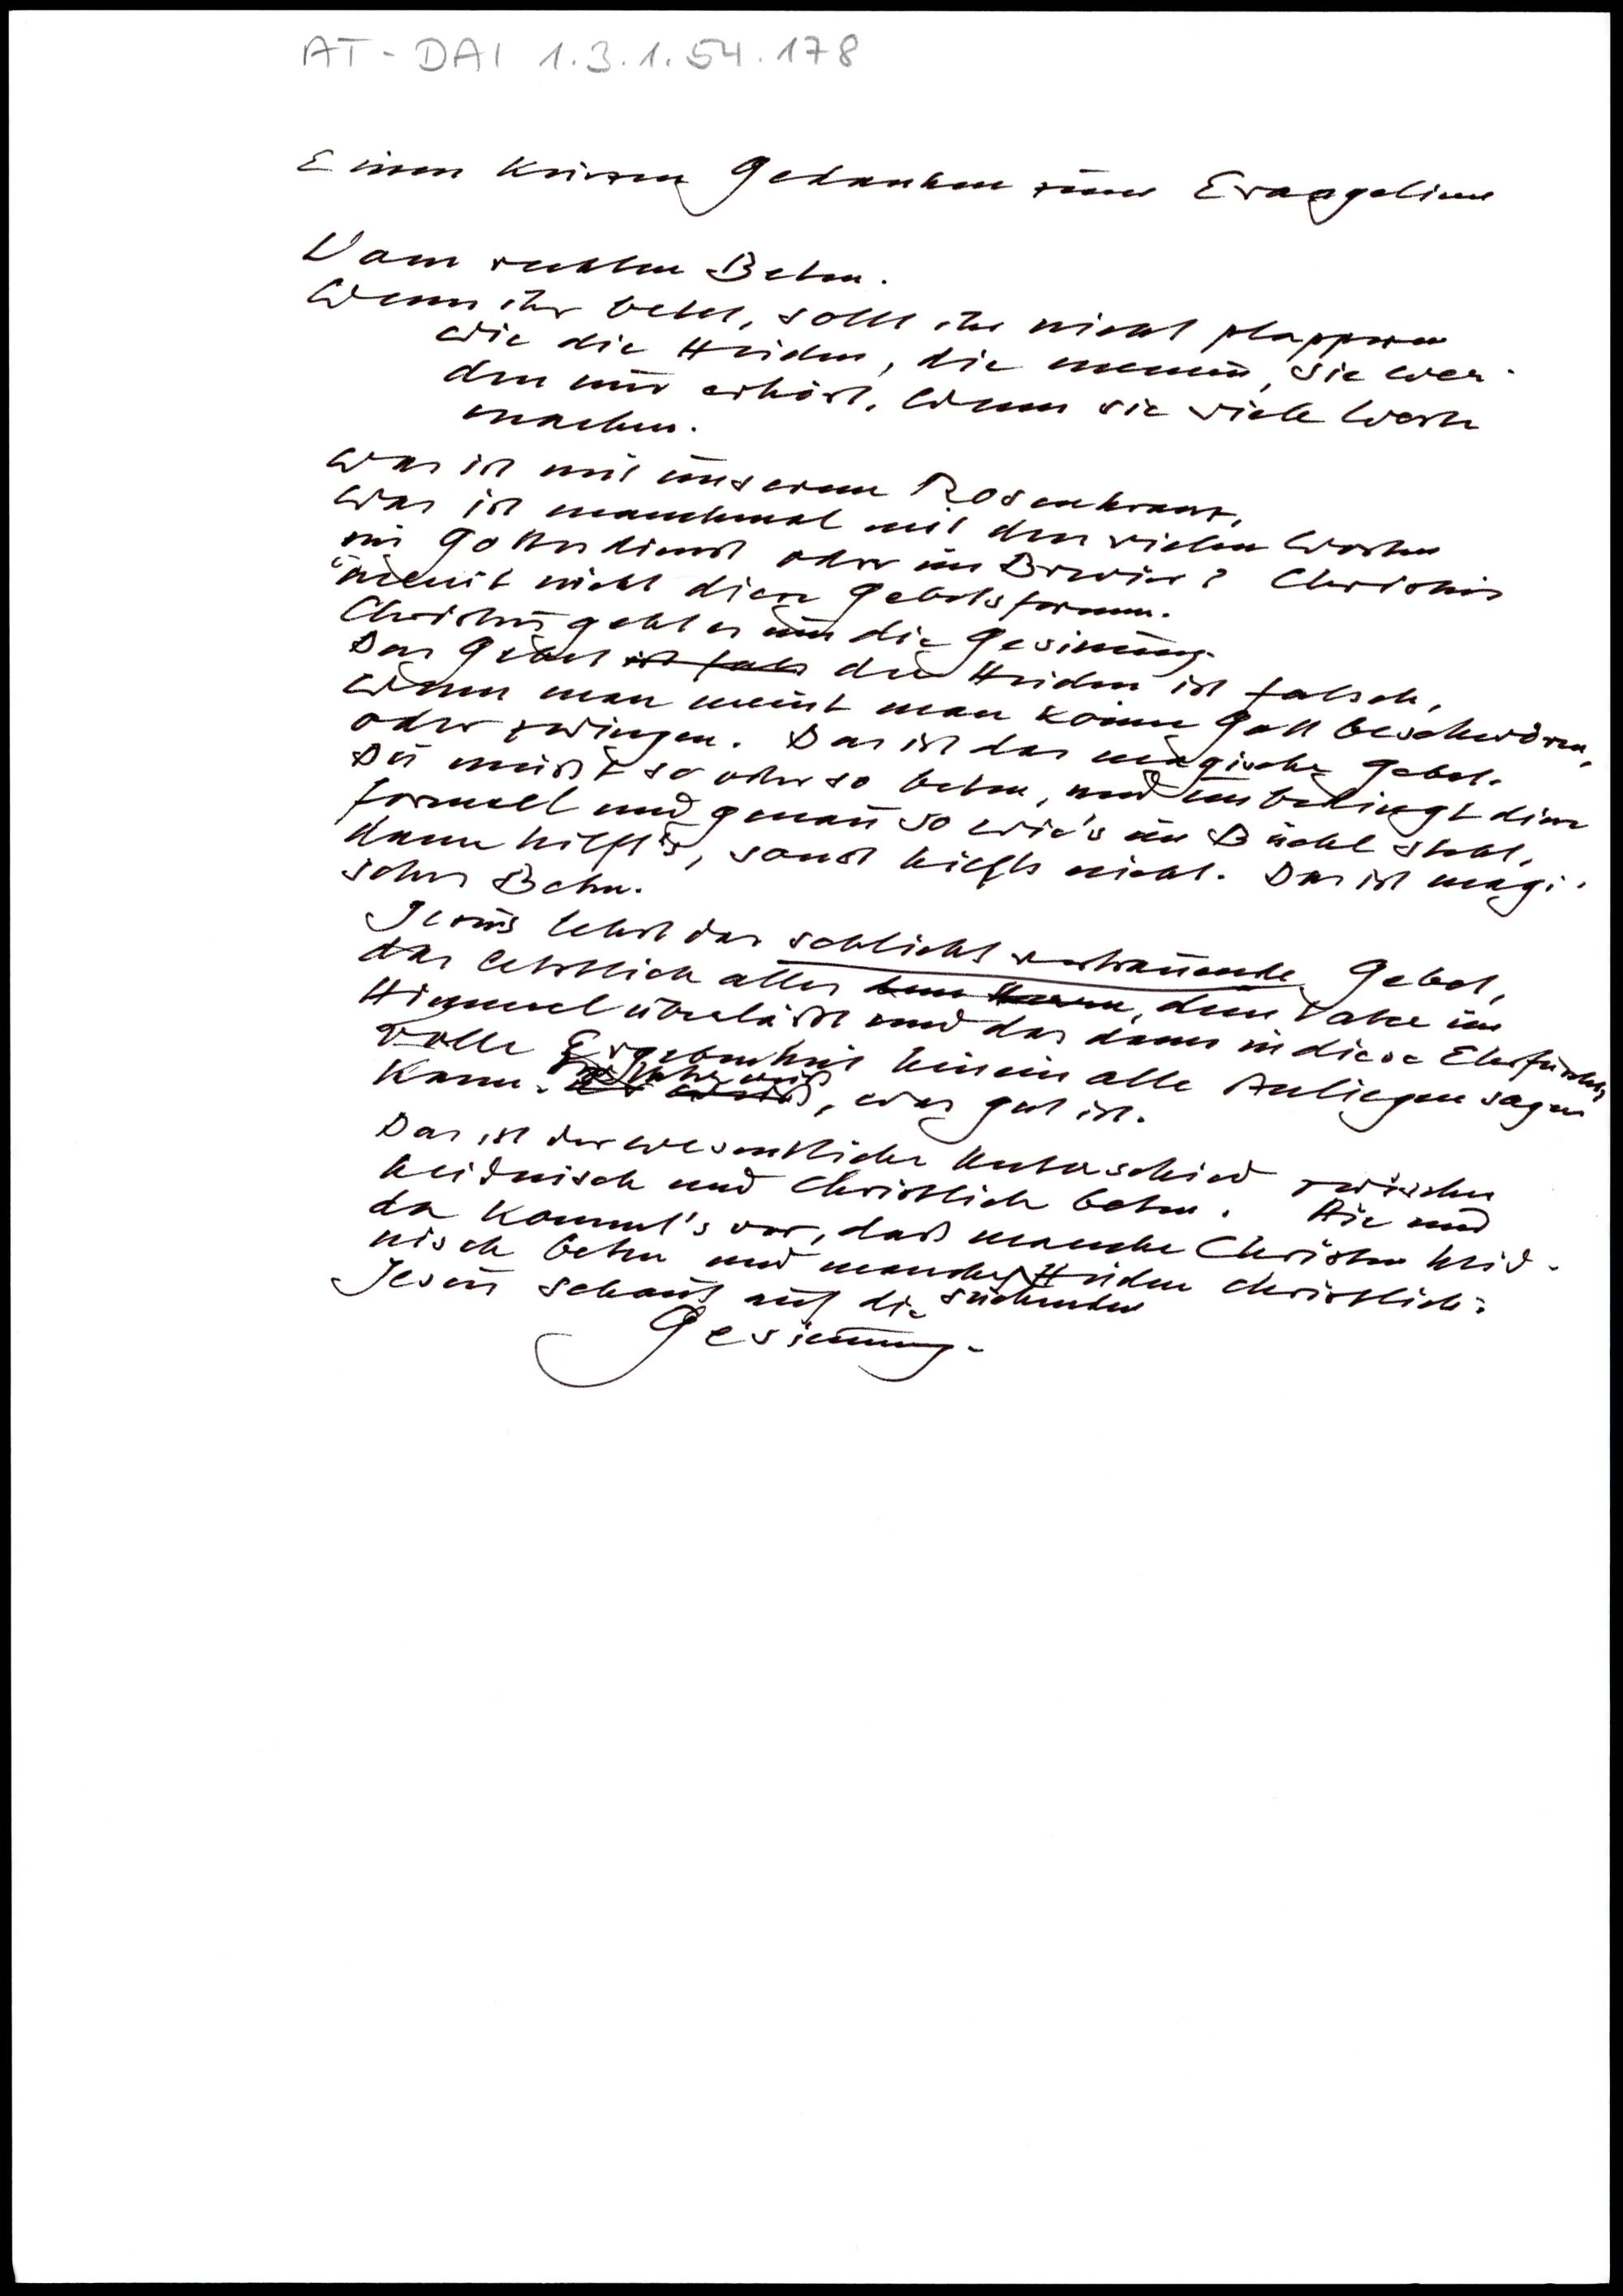 AT-DAI 1.3.1.54.178
Einen kurzen Gedanken zum Evangelium
Vom rechten Beten.
Wenn ihr betet, sollt ihr nicht plappern
wie die Heiden, die meinen, sie wer-
den nur erhört, wenn sie viele Worte
machen.
Was ist mit unserem Rosenkranz,
was ist manchmal mit den vielen Worten
im Gottesdienst oder im Brevier? Christus
meint nicht diese Gebetsformen.
Christus geht es um die Gesinnung.
Das Gebet ist fals der Heiden ist falsch,
wenn man meint man könne Gott beschwören,
oder zwingen. Das ist das magische Gebet.
Du mußt so oder so beten, und unbedingt diese
formel und genau so wie's im Büchl steht,
dann hilft's, sonst hilfts nicht. Das ist magi-
sches Beten.
Jesus lehrt das schlicht vertrauende Gebet,
das letztlich alles dem Herrn, dem Vater im
Himmel überläßt und das dann in diese Ehrfurchts-
volle Ergebenheit hinein alle Anliegen sagen
kann. Der Vater weiß, was gut ist.
Das ist der wesentliche Unterschied zwischen
heidnisch und christlich beten. Hie und
da kommt's vor, daß manche Christen heid-
nisch beten und manche suchenden Heiden christlich:
Jesus schaut auf die
Gesinnung.